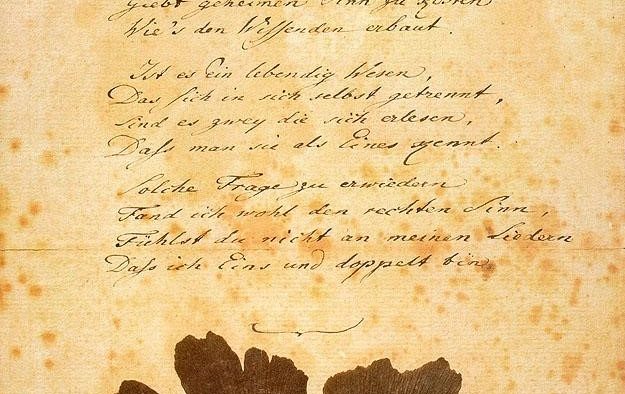 Giebt geheimen Sinn zu kosten
Wie's den Wissenden erbaut.
Ist es Ein lebendig Wesen,
Das sich in sich selbst getrennt,
Sind es zwey die sich erlesen,
Dass man sie als Eines kennt.
Solche Frage zu erwiedern
Fand ich wohl den rechten Sinn,
Fühlst du nicht an meinen Liedern
Dass ich Eins und doppelt bin